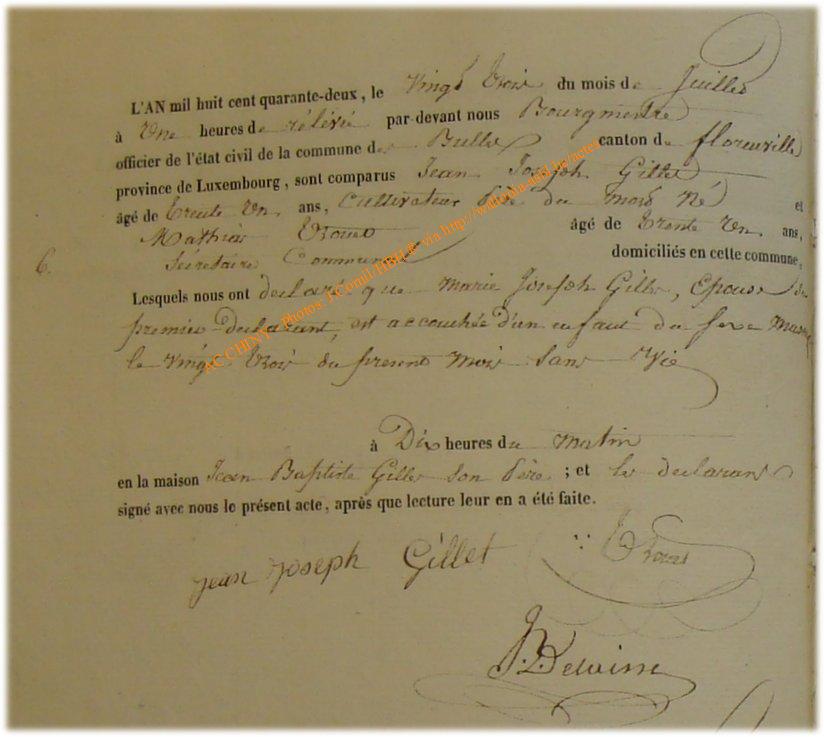 L'AN mil huit cent quarante-deux, le vingt trois du mois de Juillet
à Une heures de rélévée par-devant nous Bourgmestre
officier de l'état civil de la commune de Bulles canton de florenville
province de Luxembourg, sont comparus Jean Joseph Gillet
âgé de trente un ans, Cultivateur père du mort Né et
Mathias âgé de trente un ans,
6. Sécrétaire Communal domiciliés en cette commune,
Lesquels nous ont declaré que Marie Joseph Gilles, Epouse du
premier declarant, est accouchée d'un enfant du sexe
le vingt trois du présent mois sans Vie
à Dix heures du matin
en la maison Jean Baptiste Gilles son père ; et les declarans
signé avec nous le présent acte, après que lecture leur en a été faite.
jean joseph Gillet